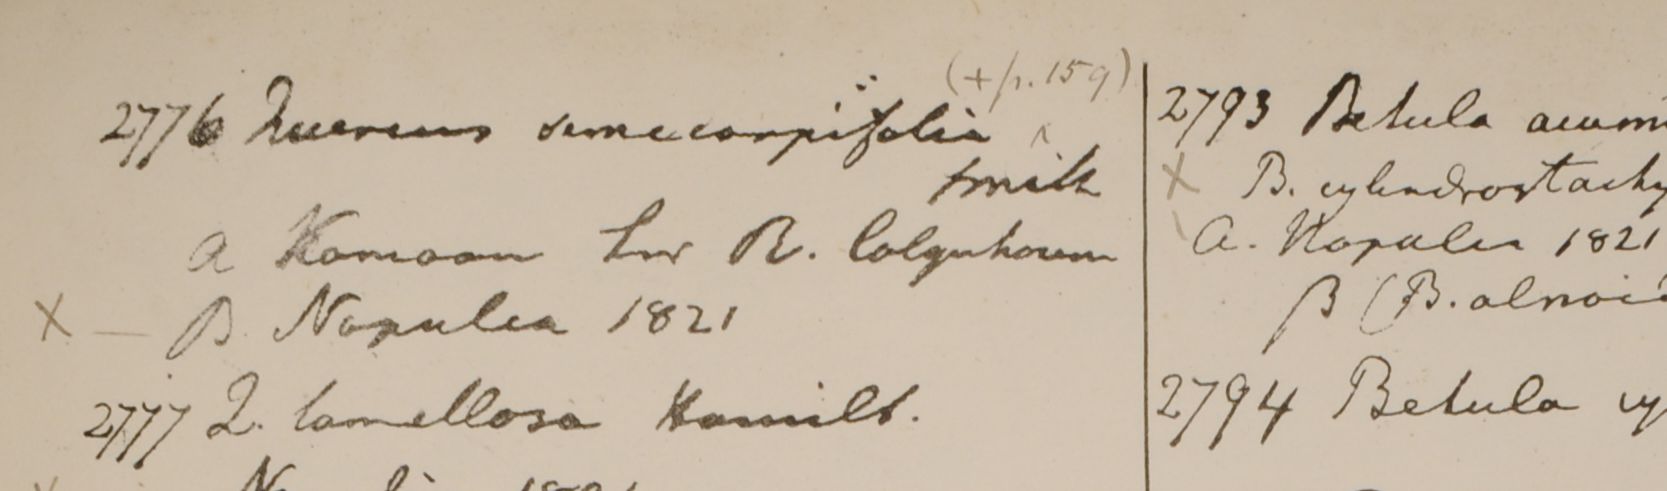 (+/p. 159)
2776 Quercus semecarpifolia
Smith
a Kamaon Hw R. Colquhoun
X — β Napalia 1821
2777 Q. lamellosa Hamilt.
1821
2793 Betula acumi
X B. cylindrostachy
a. Napalia 1821
β (B. alnoi
2794 Betula cy